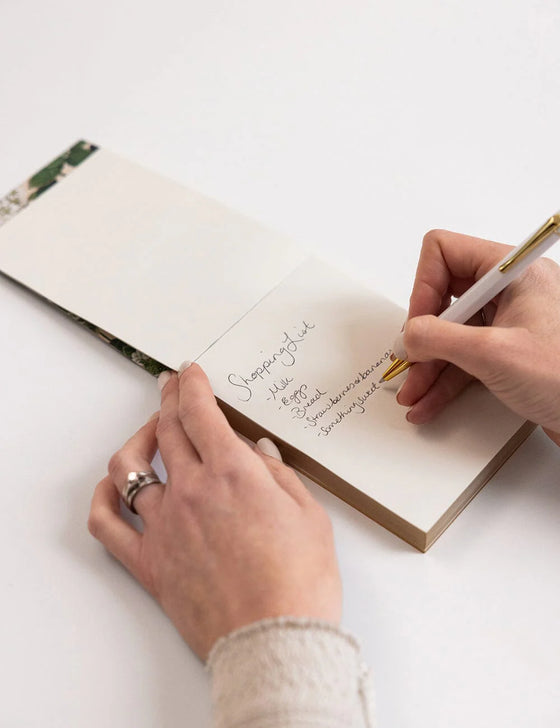 Shopping List
- Milk
- Eggs
- Bread
- Strawberries or bananas
- Something sweet